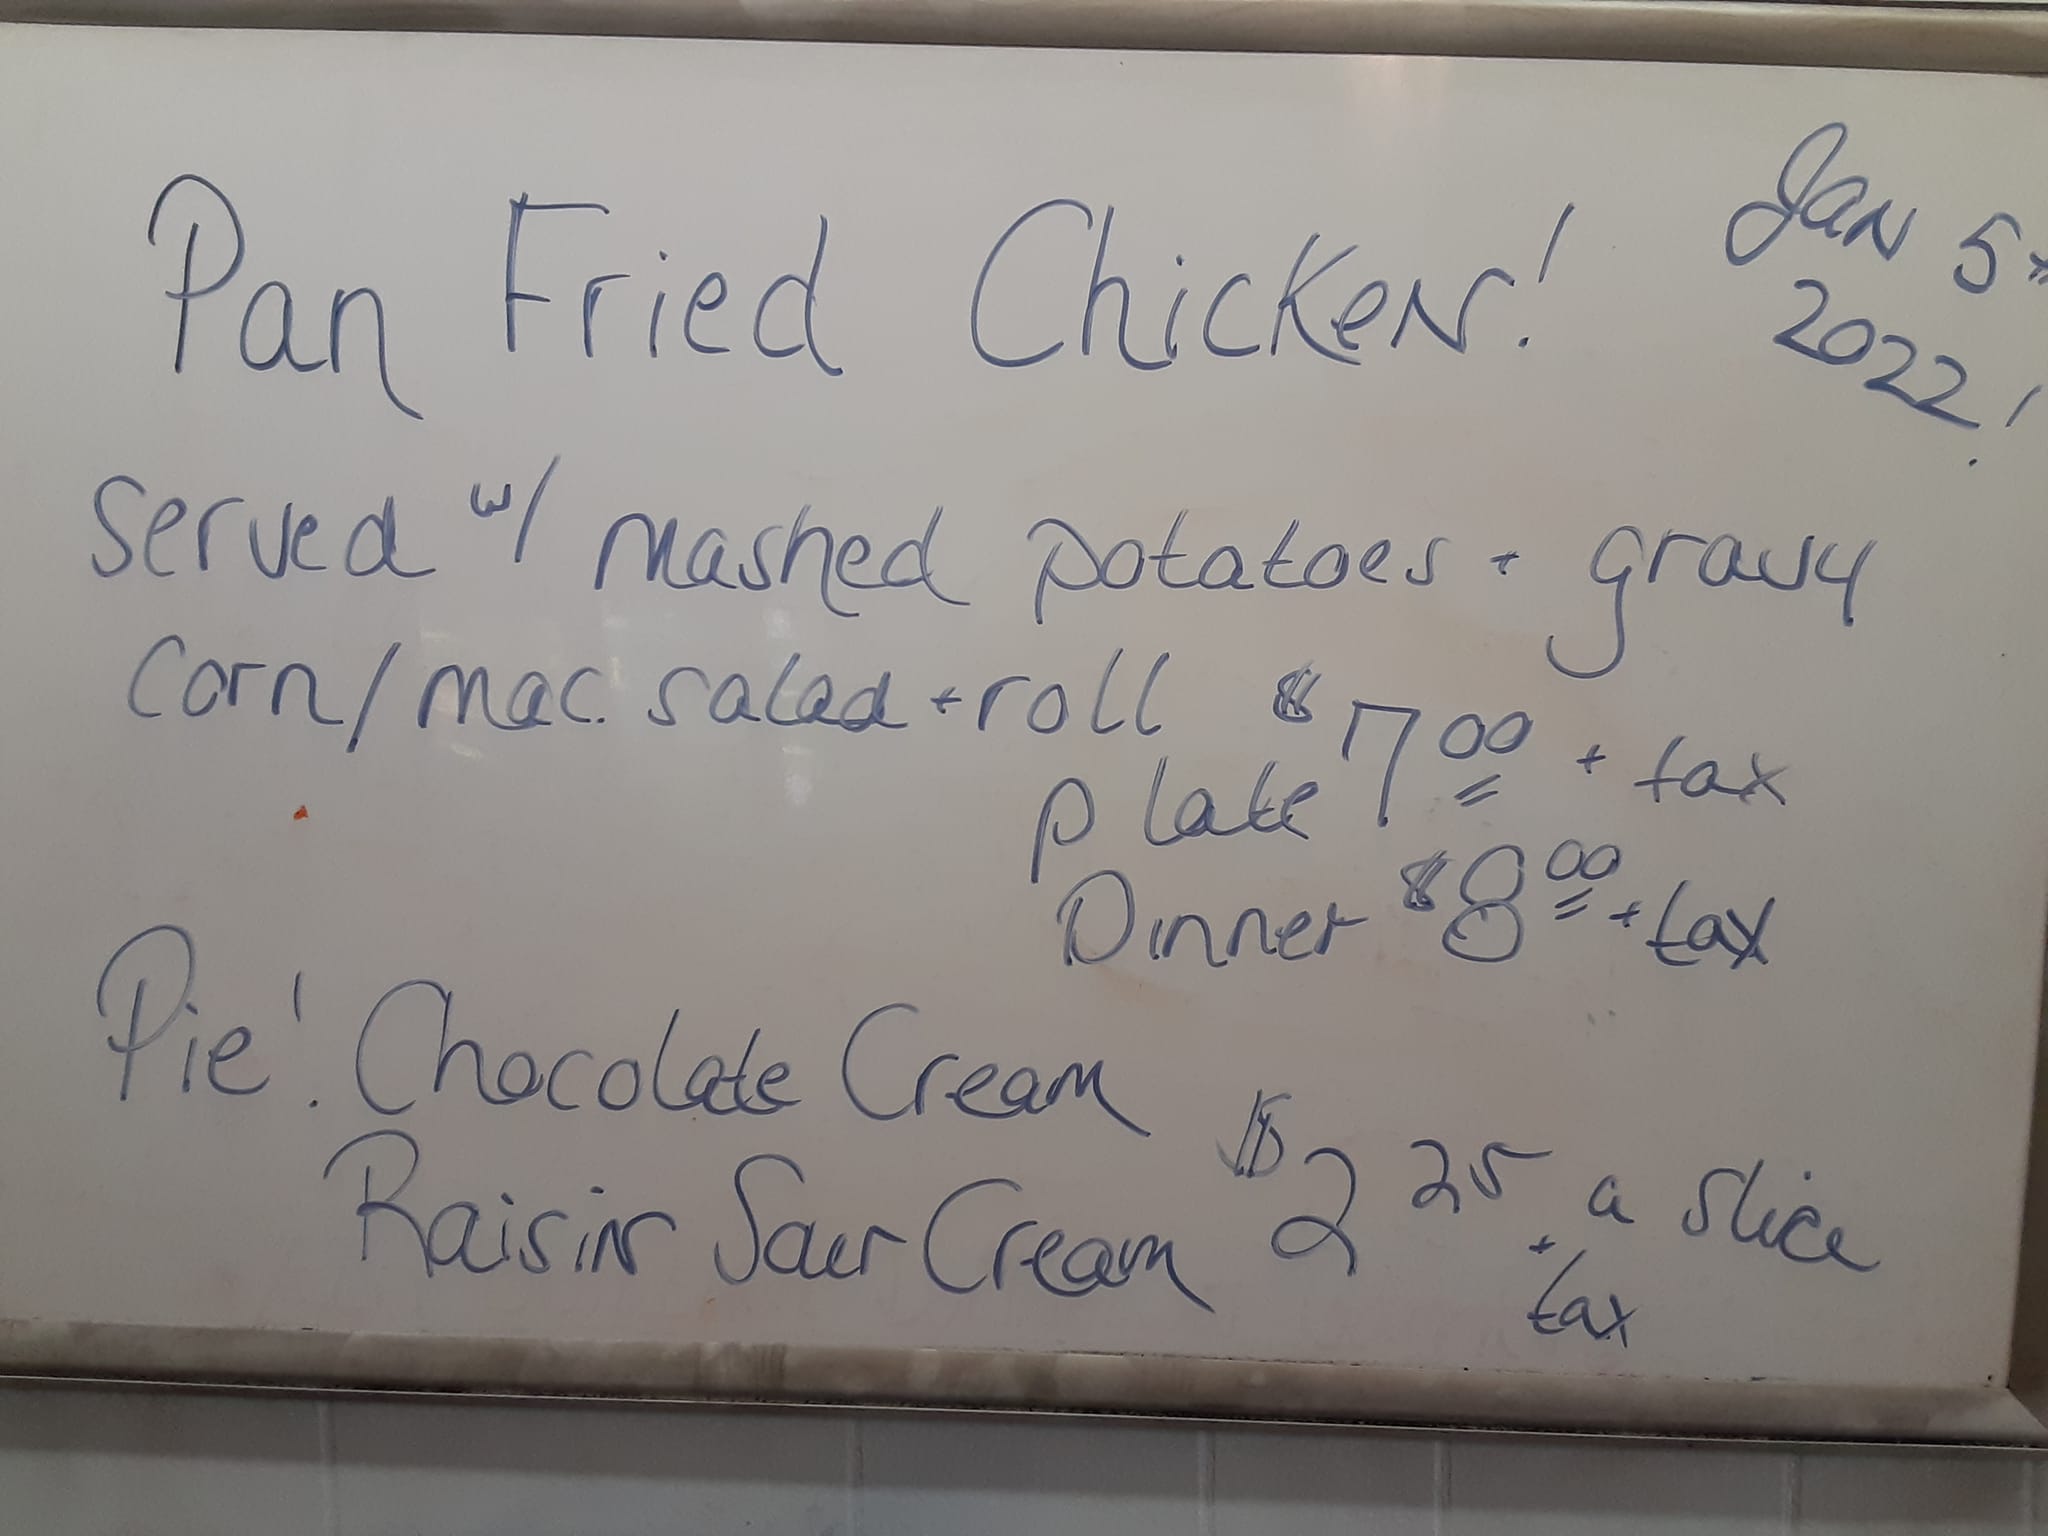 Pan Fried Chicken!
Jan 5th
2022!
Served w/ mashed potatoes + gravy
Corn/mac. salad + roll
plate $7.00 + tax
Dinner $8.00 + tax
Pie! Chocolate Cream
Raisin Sour Cream $2.25 a slice
+ tax